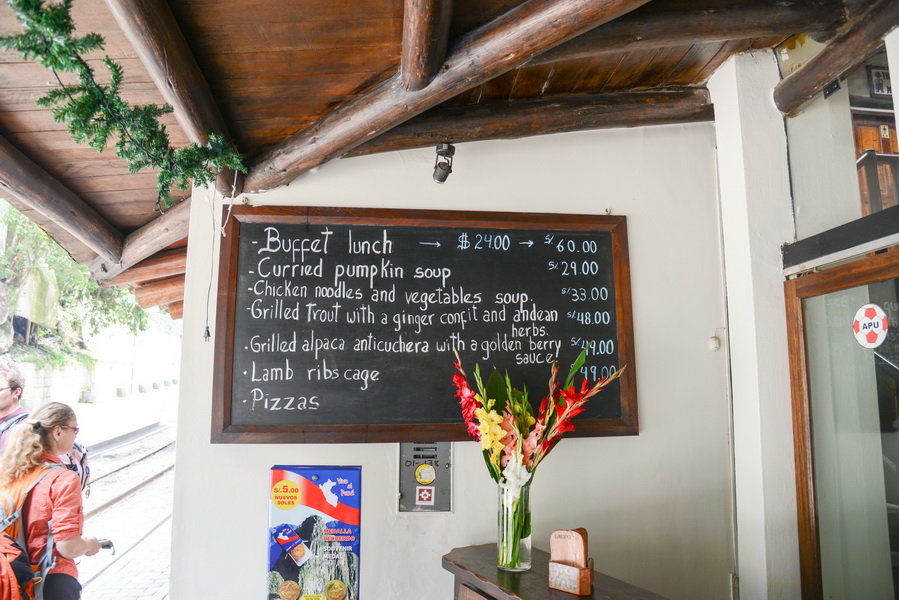 -Buffet lunch → $24.00 → S/.60.00
-Curried pumpkin soup S/.29.00
-Chicken noodles and vegetables soup. S/33.00
-Grilled Trout with a ginger confit and andean S/48.00
herbs.
-Grilled alpaca anticuchera with a golden berry S/49.00
sauce.
-Lamb ribs cage 49.00
-Pizzas
APU
S/.5.00
NUEVOS
SOLES
Viva
el
Perú
MEDALLA
RECUERDO
SOUVENIR
MEDAL